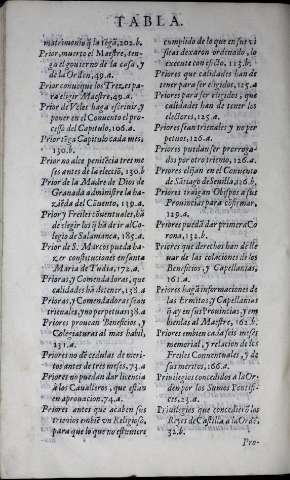 TABLA.
matrimonio q̃ la tẽgã, 202. b.
Prior, muerto el Maestre, ten-
ga el gouierno de la casa, y
de la Orden, 49. a.
Prior conuoque los Treze, pa-
ra elegir Maestre, 49. a.
Prior de Veles haga escriuir, y
poner en el Conuento el pro-
cesso del Capitulo, 106. a.
Prior tẽga Capitulo cada mes,
130. b.
Prior no alce penitẽcia tres me
ses antes de la elecciõ, 130. b
Prior de la Madre de Dios de
Granada administre la ha-
ziẽda del Cõuento, 139. a.
Prior y Freiles cõuentuales, hã
de elegir los q̃ hã de ir al Co-
legio de Salamanca, 185. a.
Prior de S. Marcos pueda ha-
zer constituciones en santa
Maria de Tudia, 172. a.
Prioras, y Comendadoras, que
calidades hã de tener, 138. a
Prioras, y Comendadoras sean
trienales, y no perpetuas 138. a
Priores prouean Beneficios, y
Colegiaturas al mas habil,
131. a.
Priores no dẽ cedulas de meri-
tos antes de tres meses, 73. a
Priores no puedan dar licencia
à los Caualleros, que estan
en aprouacion, 74. a.
Priores antes que acaben sus
trienios embiẽ vn Religioso,
para que lo que no estuuiere
cumplido de lo que en sus vi
sitas dexaron ordenado, lo
execute con efecto, 113. b.
Priores que calidades han de
tener para ser elegidos, 125. a
Priores para ser elegidos, que
calidades han de tener los
electores, 125. a.
Priores sean trienales y no per
petuos, 126. a.
Priores puedan ser prorroga-
dos por otro trienio, 126. a.
Priores elijan en el Conuento
de Sãtiago de Seuilla, 126. b.
Priores traigan Obispos a sus
Prouincias para confirmar,
129. a.
Priores puedã dar primera Co
rona, 132. b.
Priores que derechos han de lle
uar de las colaciones de los
Beneficios, y Capellanias,
161. a.
Priores hagã informaciones de
las Ermitas y Capellanias
q̃ ay en sus Prouincias, y em
bienlas al Maestre, 162. b.
Priores embien cada seis meses
memorial, y relacion de los
Freiles Conuentuales, y de
sus meritos, 166. a.
Priuilegios concedidos a la Or-
den por los Sumos Pontifi-
ces, 23. a.
Priuilegios que concediero los
Reyes de Castilla a la Ordẽ,
32. b.
Pro-